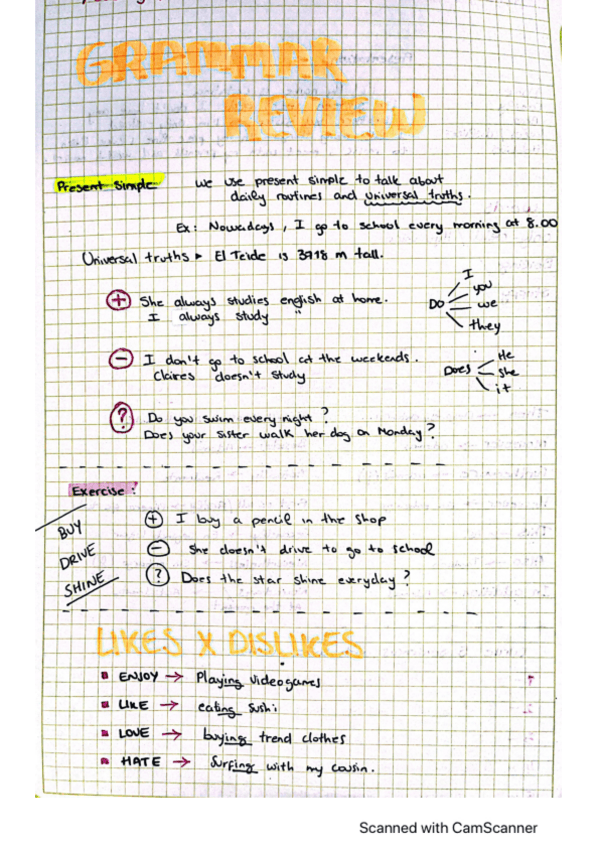 GRAMMAR
REVIEW
Present Simple we use present simple to talk about
daily routines and universal truths.
Ex: Nowadays, I go to school every morning at 8.00
Universal truths ► El Teide is 3718 m tall.
+ She always studies english at home.
I always study "
Do
I
you
we
they
- I don't go to school at the weekends.
Claires doesn't study
Does
He
she
it
? Do you swim every night?
Does your sister walk her dog on Monday?
Exercise:
BUY
DRIVE
SHINE
+ I buy a pencil in the shop
- She doesn't drive to go to school
? Does the star shine everyday?
LIKES X DISLIKES
▪ ENJOY → Playing videogames
▪ LIKE → eating sushi
▪ LOVE → buying trend clothes
▪ HATE → Surfing with my cousin.
Scanned with CamScanner